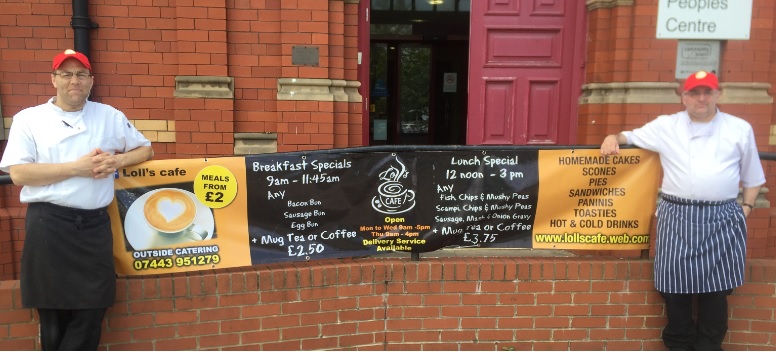 Peoples
Centre
Loll's cafe
MEALS
FROM
£2
OUTSIDE CATERING
07443 951279
Breakfast Specials
9am - 11:45am
Any
Bacon Bun
Sausage Bun
Egg Bun
+ Mug Tea or Coffee
£2.50
CAFE
Open
Mon to Wed 9am -5pm
Thu 9am - 4pm
Delivery Service
Available
Lunch Special
12 noon - 3 pm
Any
Fish, Chips & Mushy Peas
Scampi, Chips & Mushy Peas
Sausage, Mash & Onion Gravy
+ Mug Tea or Coffee
£3.75
HOMEMADE CAKES
SCONES
PIES
SANDWICHES
PANINIS
TOASTIES
HOT & COLD DRINKS
www.lollscafe.web.com